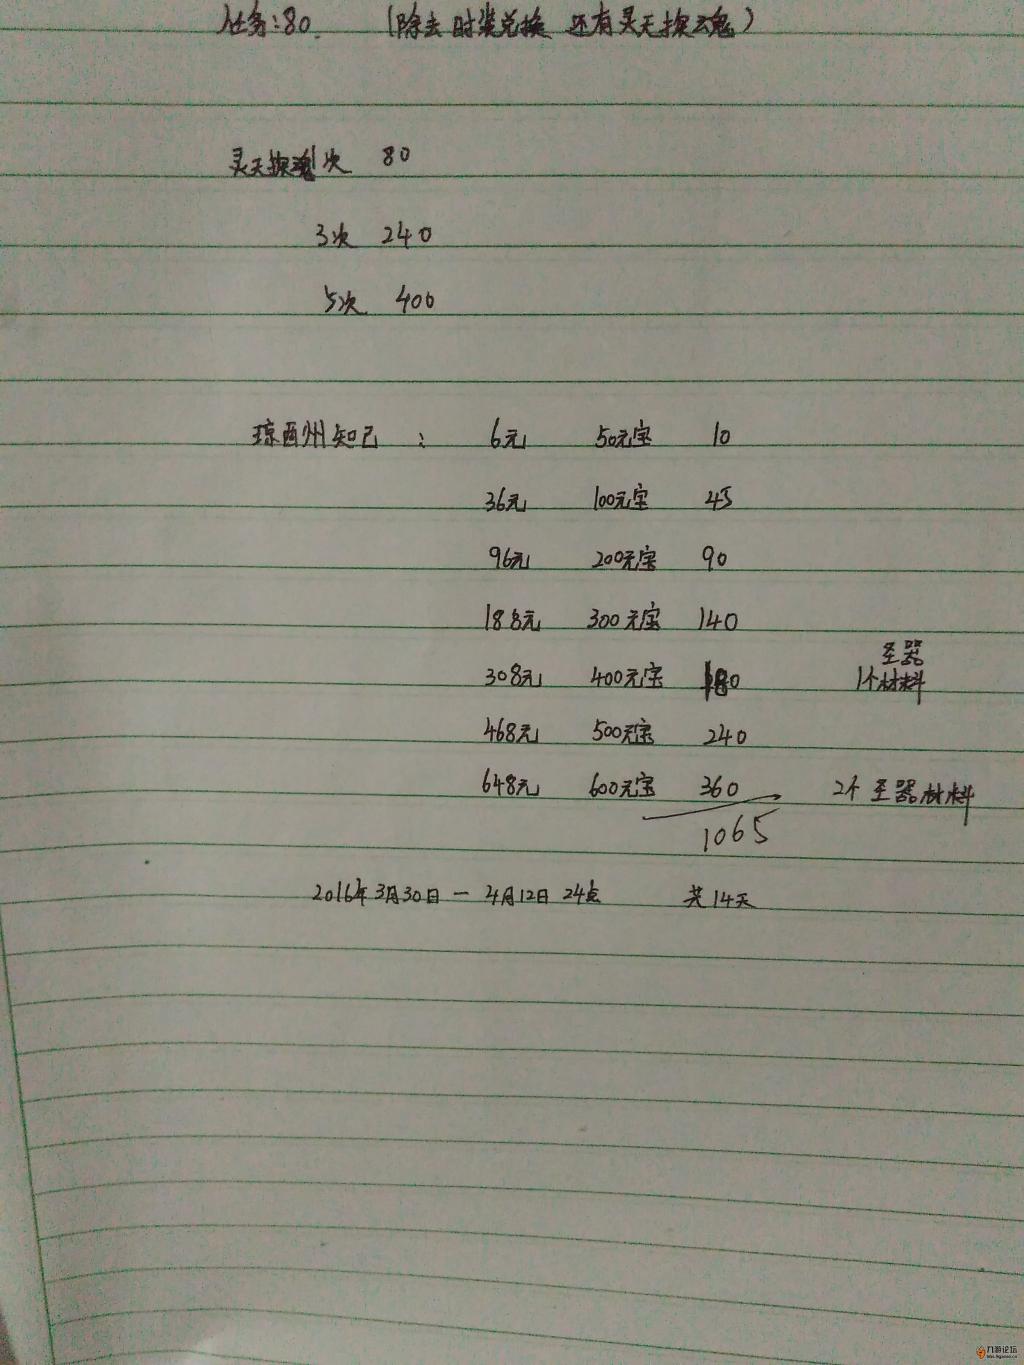 任务:80. (除去时装兑换 还有灵天探云魂)
灵天探魂1次 80
3次 240
5次 400
琼酉州知己 : 6元 50元宝 10
36元 100元宝 45
96元 200元宝 90
188元 300元宝 140
圣器
308元 400元宝 180 1个材料
468元 500元宝 240
648元 600元宝 360 2个 圣器材料
1065
2016年3月30日 — 4月12日 24点 共14天
九游论坛